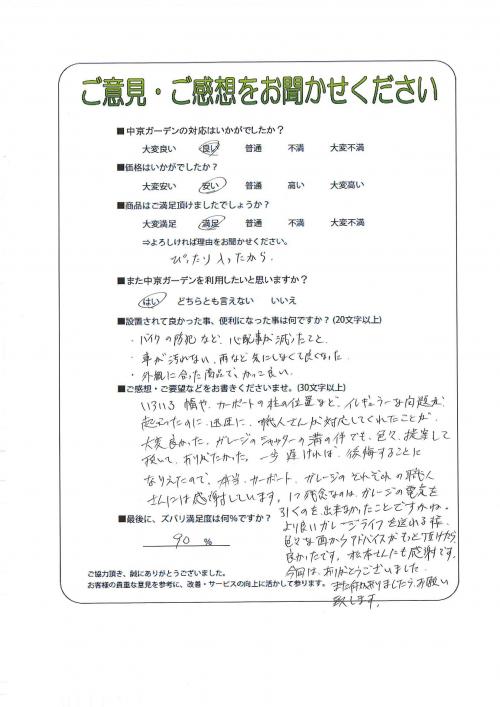 ご意見・ご感想をお聞かせください
■中京ガーデンの対応はいかがでしたか？
大変良い 良い 普通 不満 大変不満
■価格はいかがでしたか？
大変安い 安い 普通 高い 大変高い
■商品はご満足頂けましたでしょうか？
大変満足 満足 普通 不満 大変不満
⇒よろしければ理由をお聞かせください。
ぴったり入ったから。
■また中京ガーデンを利用したいと思いますか？
はい どちらとも言えない いいえ
■設置されて良かった事、便利になった事は何ですか？(20文字以上)
・バイクの防犯など、心配事が減ったこと。
・車が汚れない、雨など気にしなくて良くなった。
・外観に合った商品で、かっこ良い。
■ご感想・ご要望などをお書きくださいませ。(30文字以上)
いろいろ幅や、カーポートの柱の位置など、イレギュラーな問題が
起こったのに、迅速に、職人さんが対応してくれたことが、
大変良かった。ガレージのシャッターの溝の件でも、色々、提案して
頂いて、ありがたかった。一歩遅ければ、後悔することに
なりえたので、本当、カーポート、ガレージのそれぞれの職人
さんには感謝しています。1つ残念なのは、ガレージの電気を
引くのを出来なかったことですかね。
■最後に、ズバリ満足度は何％ですか？
90 ％
より良いガレージライフを送れる様、
色々な面からアドバイスがもっと頂けたら
良かったです。松本さんにも感謝です。
今回は、ありがとうございました。
また何かありましたら、お願い
致します。
ご協力頂き、誠にありがとうございました。
お客様の貴重な意見を参考に、改善・サービスの向上に活かして参ります。